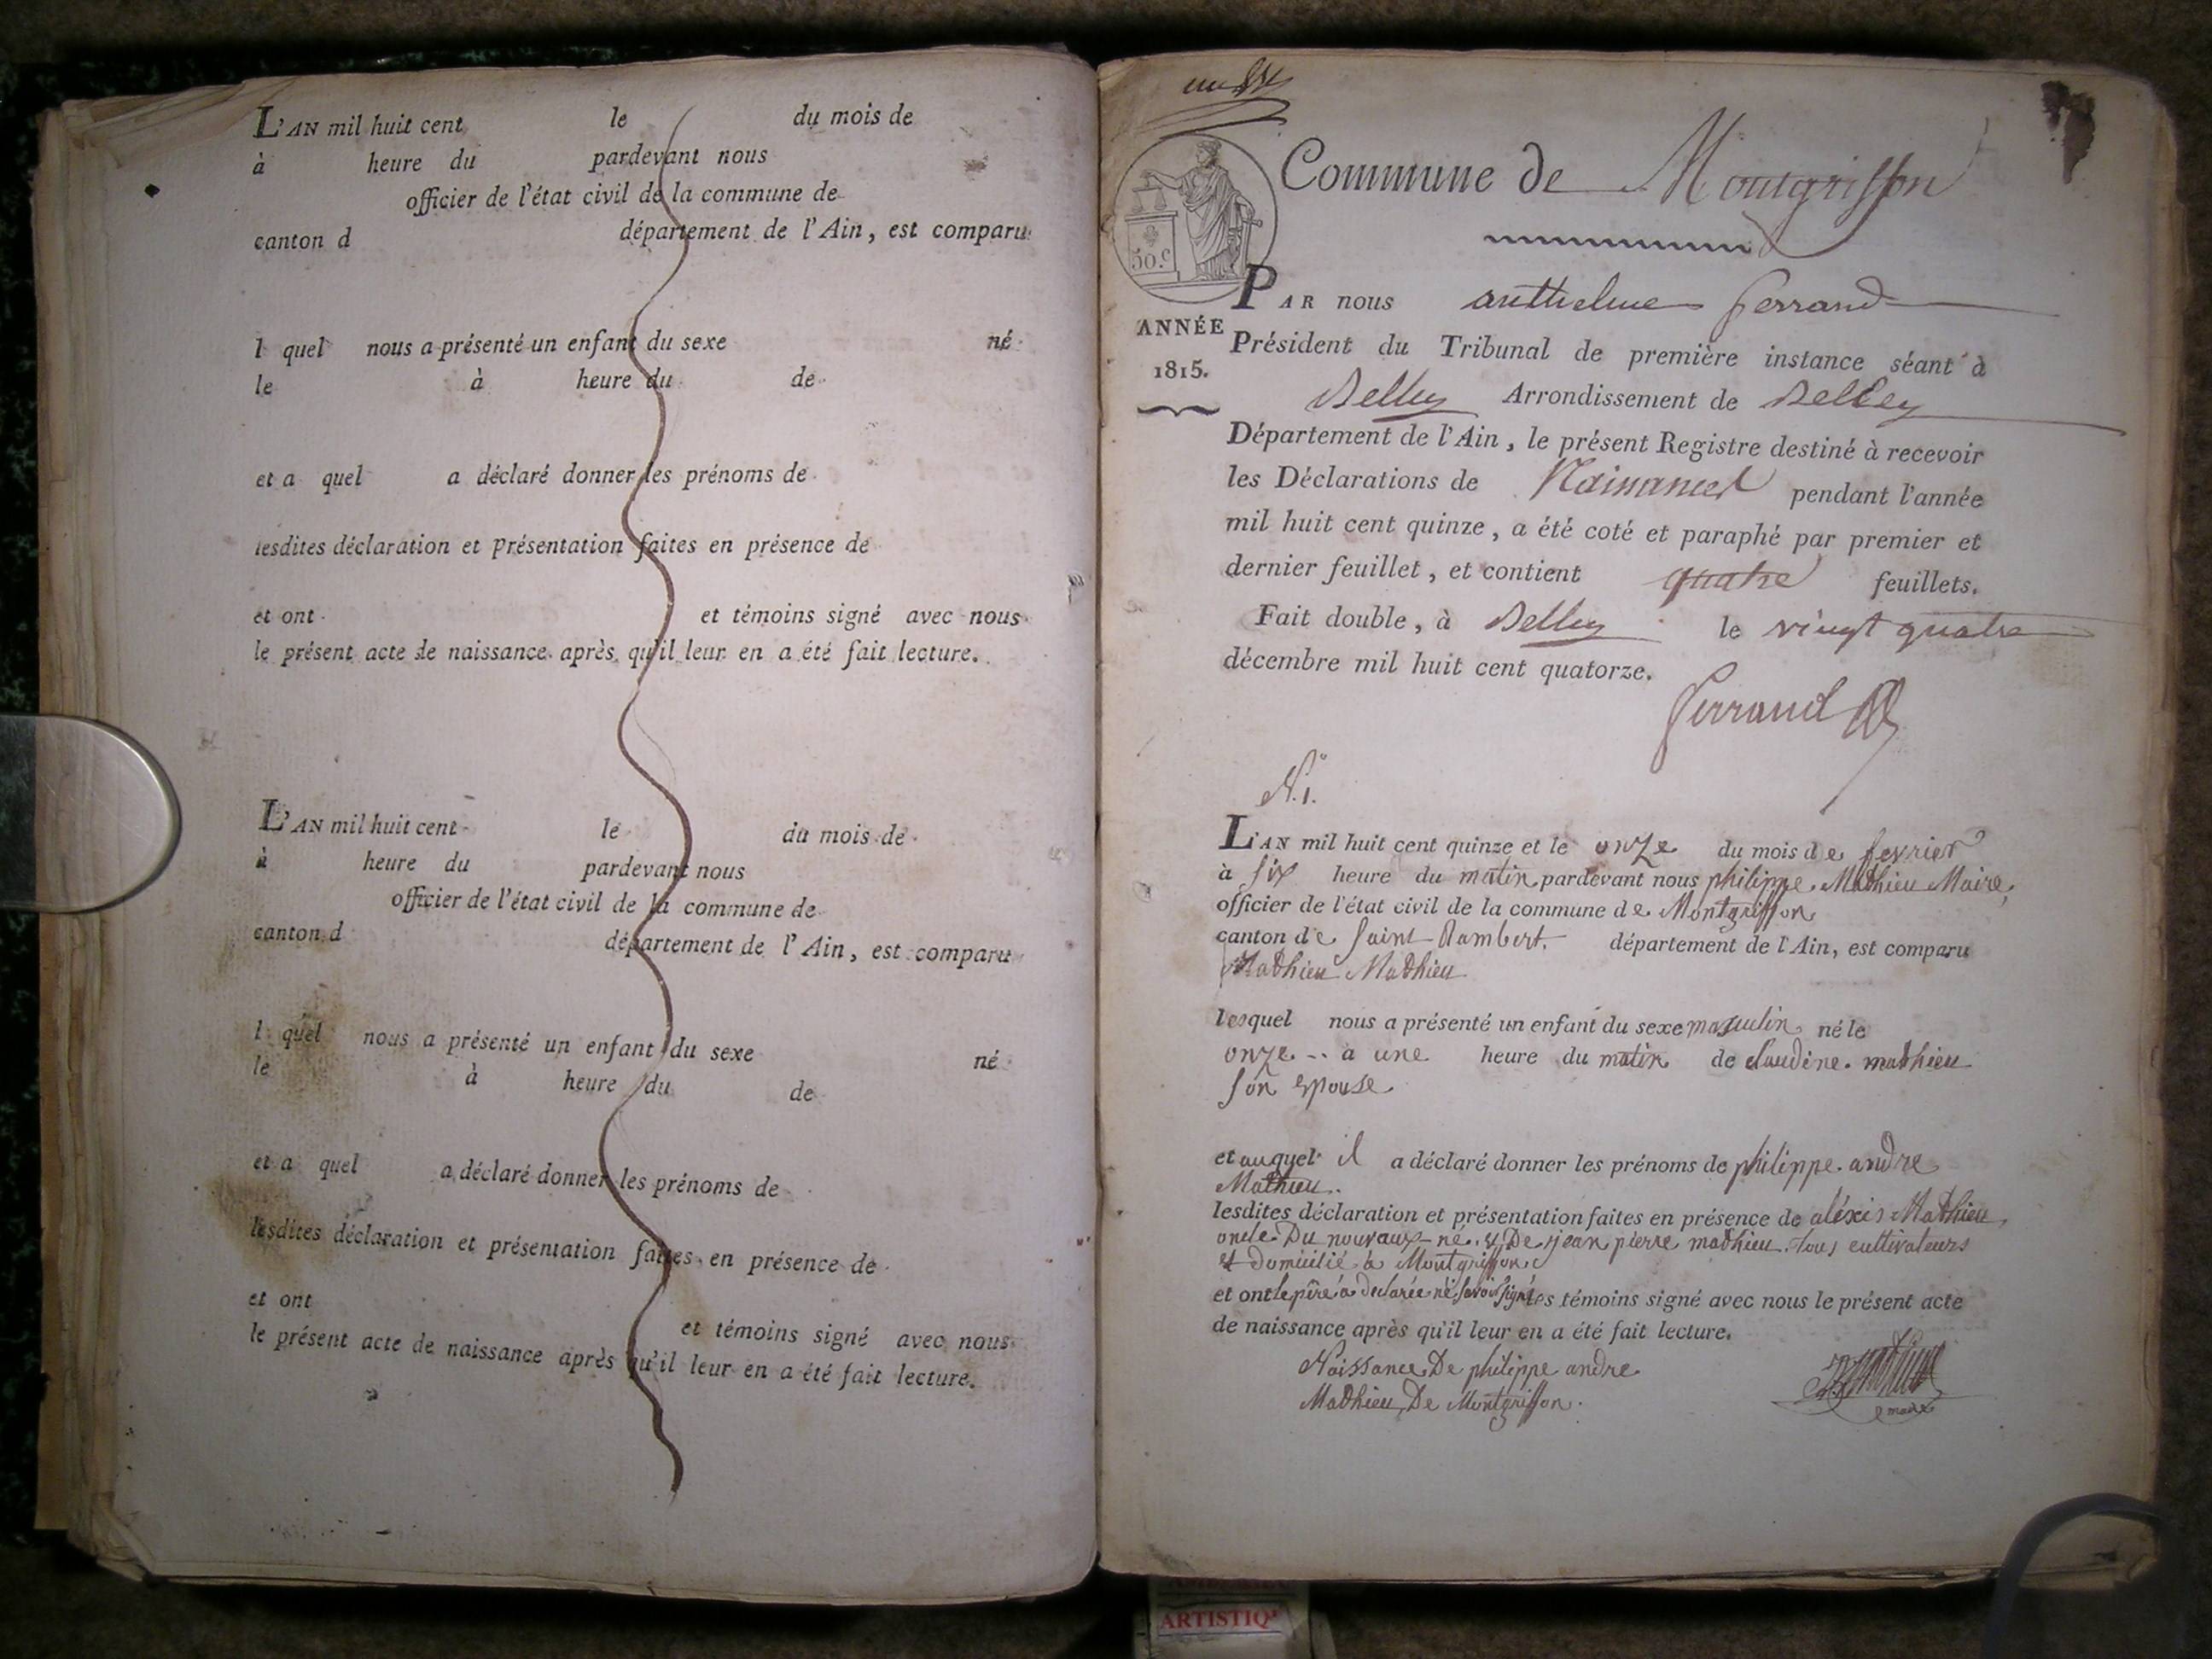 L'AN mil huit cent le du mois de
à heure du pardevant nous
officier de l'état civil de la commune de
canton d département de l'Ain, est comparu
l quel nous a présenté un enfant du sexe né
le à heure du de
et a quel a déclaré donner les prénoms de
lesdites déclaration et présentation faites en présence de
et ont et témoins signé avec nous
le présent acte de naissance après qu'il leur en a été fait lecture.
L'AN mil huit cent le du mois de
à heure du pardevant nous
officier de l'état civil de la commune de
canton d département de l'Ain, est comparu
l quel nous a présenté un enfant du sexe né
le à heure du de
et a quel a déclaré donner les prénoms de
lesdites déclaration et présentation faites en présence de
et ont et témoins signé avec nous
le présent acte de naissance après qu'il leur en a été fait lecture.
Commune de Montgriffon
50.c
PAR nous anthelme ferrand
ANNÉE
1815.
Président du Tribunal de première instance séant à
Belley Arrondissement de Belley
Département de l'Ain, le présent Registre destiné à recevoir
les Déclarations de Naissances pendant l'année
mil huit cent quinze, a été coté et paraphé par premier et
dernier feuillet, et contient quatre feuillets.
Fait double, à Belley le vingt quatre
décembre mil huit cent quatorze.
Ferrand
N.º 1.
L'AN mil huit cent quinze et le onze du mois de fevrier
à six heure du matin pardevant nous philippe Mathieu Maire,
officier de l'état civil de la commune de Montgriffon
canton de Saint-Rambert. département de l'Ain, est comparu
Mathieu Mathieu
lesquel nous a présenté un enfant du sexe masculin né le
onze -- a une heure du matin de claudine. mathieu
son epouse
et auquel il a déclaré donner les prénoms de philippe. andre
Mathieu.
lesdites déclaration et présentation faites en présence de aléxis Mathieu
oncle Du nouvaux-né. & De jean pierre mathieu. tous cultivateurs
et domicilié à Montgriffon
et ont le père a declarée ne savoir signé les témoins signé avec nous le présent acte
de naissance après qu'il leur en a été fait lecture.
Naissance De philippe andre
Mathieu De Montgriffon.
maire
ARTISTIQ